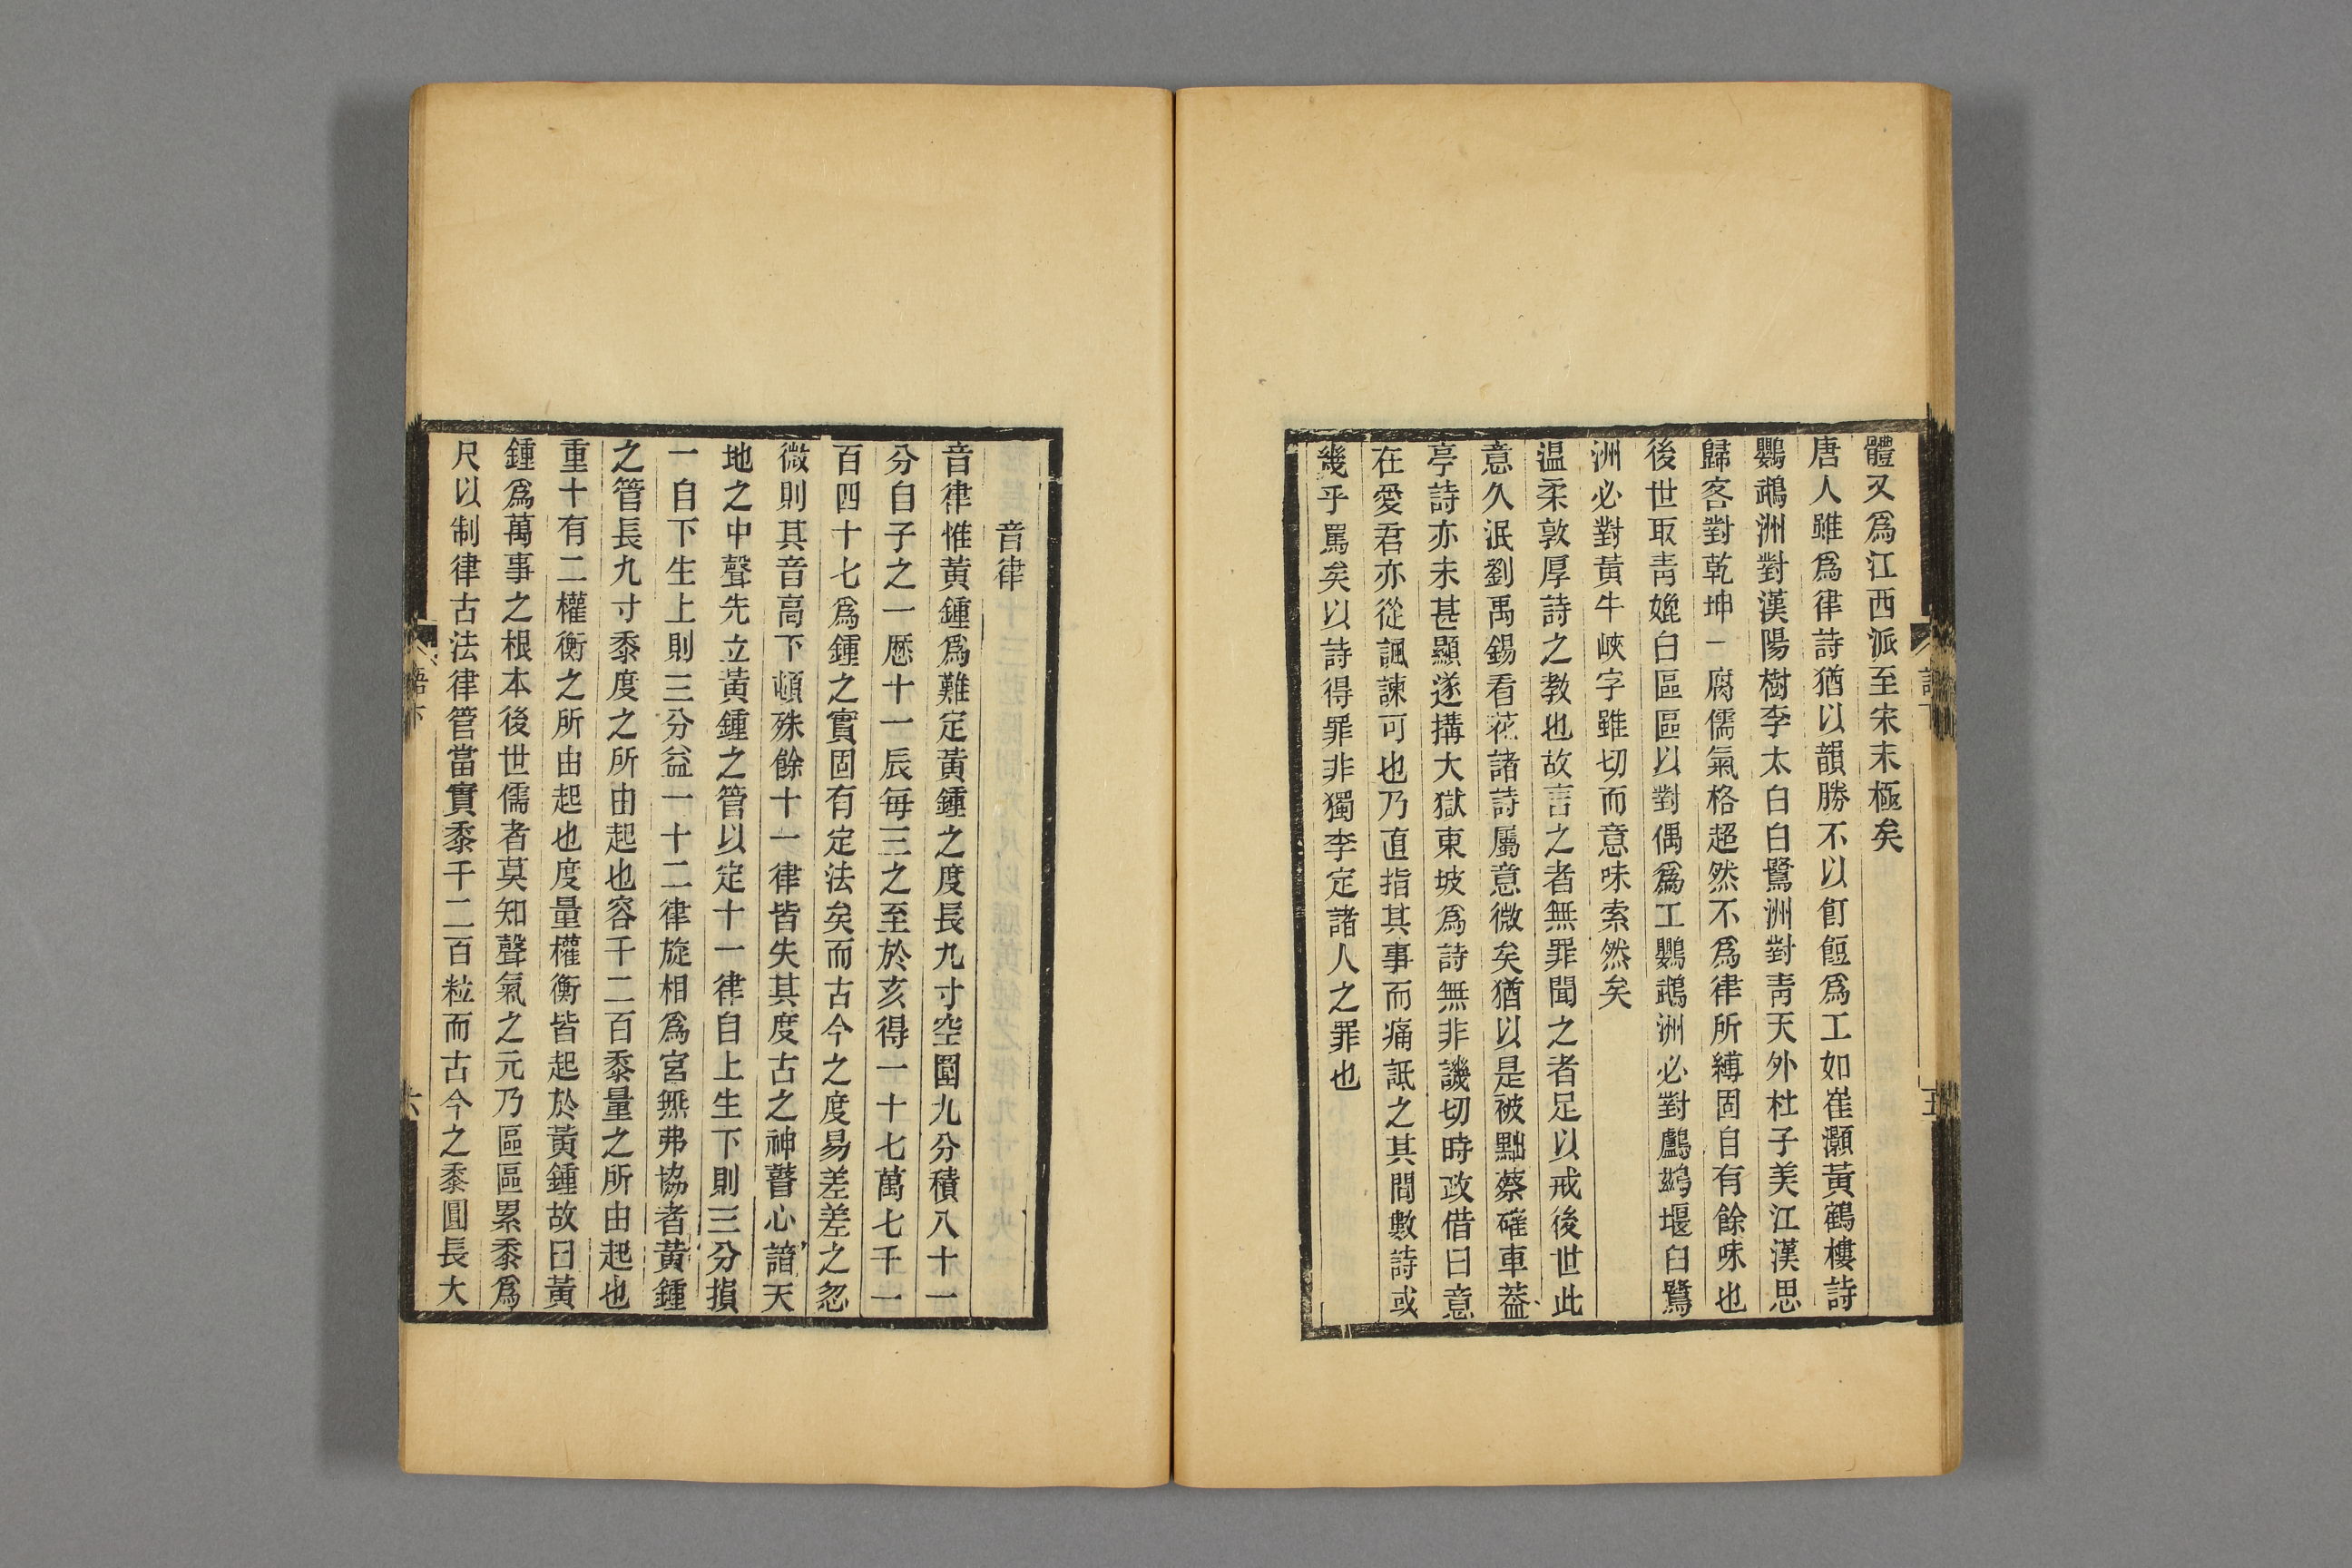 體又爲江西派至宋末極矣
唐人雖爲律詩猶以韻勝不以飣餖爲工如崔灝黃鶴樓詩
鸚鵡洲對漢陽樹李太白白鷺洲對靑天外杜子美江漢思
歸客對乾坤一腐儒氣格超然不爲律所縛固自有餘味也
後世取靑媲白區區以對偶爲工鸚鵡洲必對鸕鷀堰白鷺
洲必對黃牛峽字雖切而意味索然矣
温柔敦厚詩之教也故言之者無罪聞之者足以戒後世此
意久泯劉禹錫看花諸詩屬意微矣猶以是被黜蔡確車葢
亭詩亦未甚顯遂搆大獄東坡爲詩無非譏切時政借曰意
在愛君亦從諷諫可也乃直指其事而痛詆之其間數詩或
幾乎罵矣以詩得罪非獨李定諸人之罪也
音律
音律惟黃鍾爲難定黃鍾之度長九寸空圍九分積八十一
分自子之一歴十一辰每三之至於亥得一十七萬七千一
百四十七爲鍾之實固有定法矣而古今之度易差差之忽
微則其音高下頓殊餘十一律皆失其度古之神瞽心諳天
地之中聲先立黃鍾之管以定十一律自上生下則三分損
一自下生上則三分益一十二律旋相爲宮無弗協者黃鍾
之管長九寸黍度之所由起也容千二百黍量之所由起也
重十有二權衡之所由起也度量權衡皆起於黃鍾故曰黃
鍾爲萬事之根本後世儒者莫知聲氣之元乃區區累黍爲
尺以制律古法律管當實黍千二百粒而古今之黍圓長大
語下
六